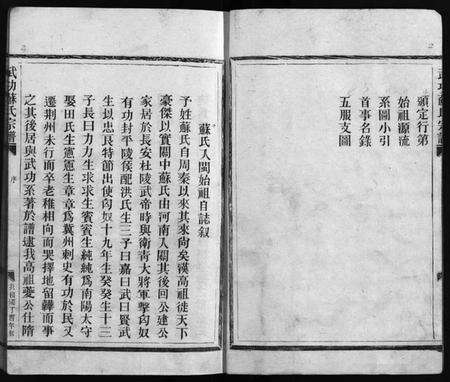 頭定行第
始祖源流
系圖小引
首事名錄
五服支圖
武功蘇氏宗譜
序
蘇氏入閩始祖自誌叙
予姓蘇氏自周秦以來其來尚矣漢高祖徙天下
豪傑以實關中蘇氏由河南入關其後囘建公
家居於長安杜陵武帝時與衛青大將軍擊匈奴
有功封平陵侯配洪氏生三子曰嘉曰武曰賢武
生以忠良特節出使匈奴十九年生癸癸生十三
子長曰力力生求求生賓賓生純純爲南陽太守
娶田氏生憲憲生章章爲冀州刺史有功於民又
遷荆州未行而卒老稚相向而哭擇地留轝而事
之其後居與武功系著於譜逮我高祖憂公仕隋